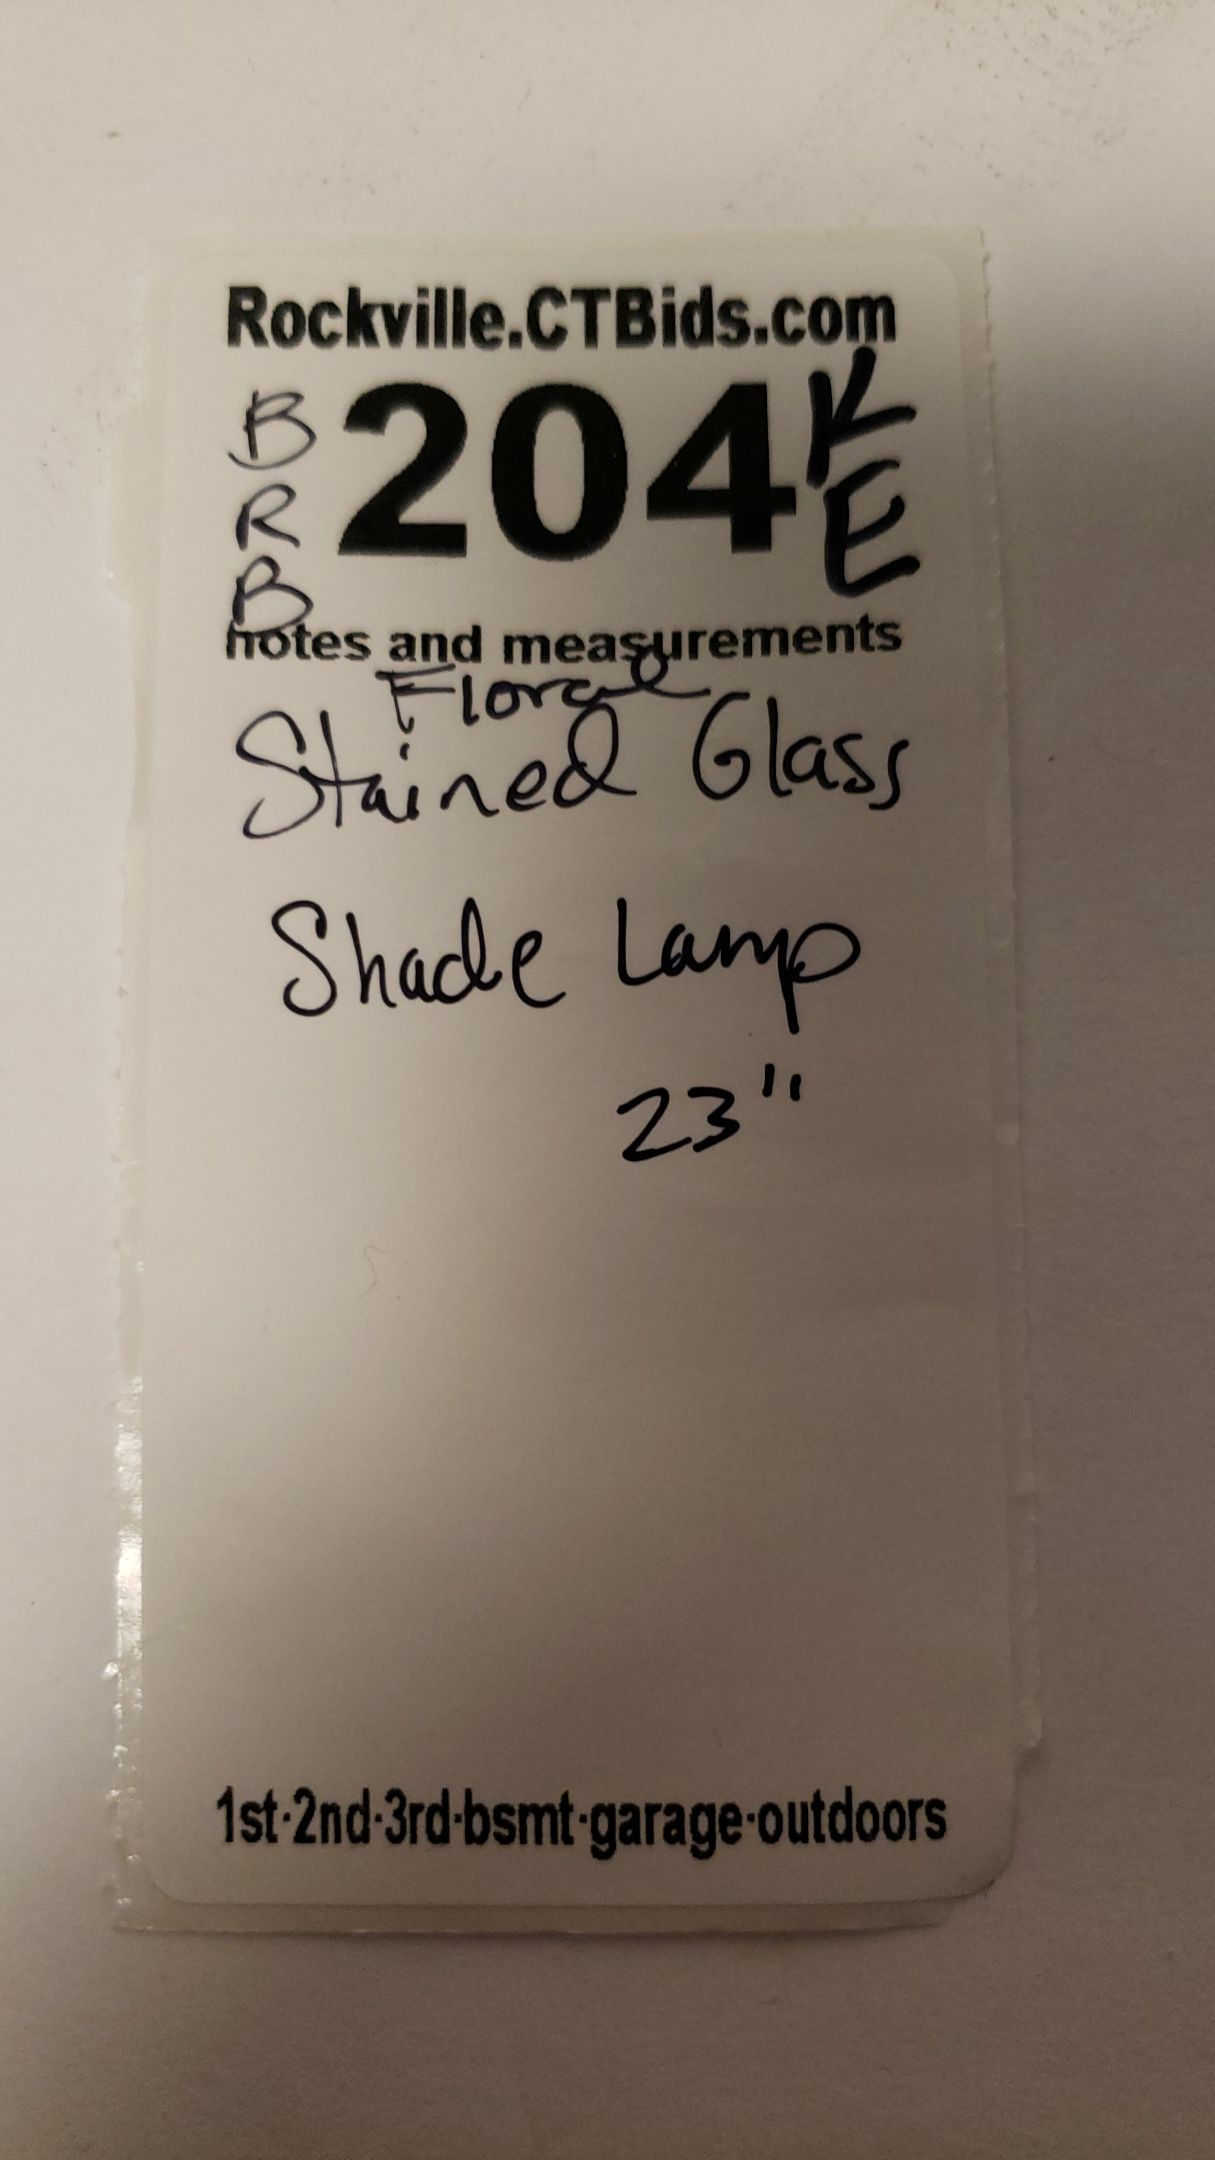 Rockville.CTBids.com
B
R
B
204
K
E
notes and measurements
Floral
Stained Glass
Shade Lamp
23"
1st·2nd·3rd·bsmt·garage·outdoors